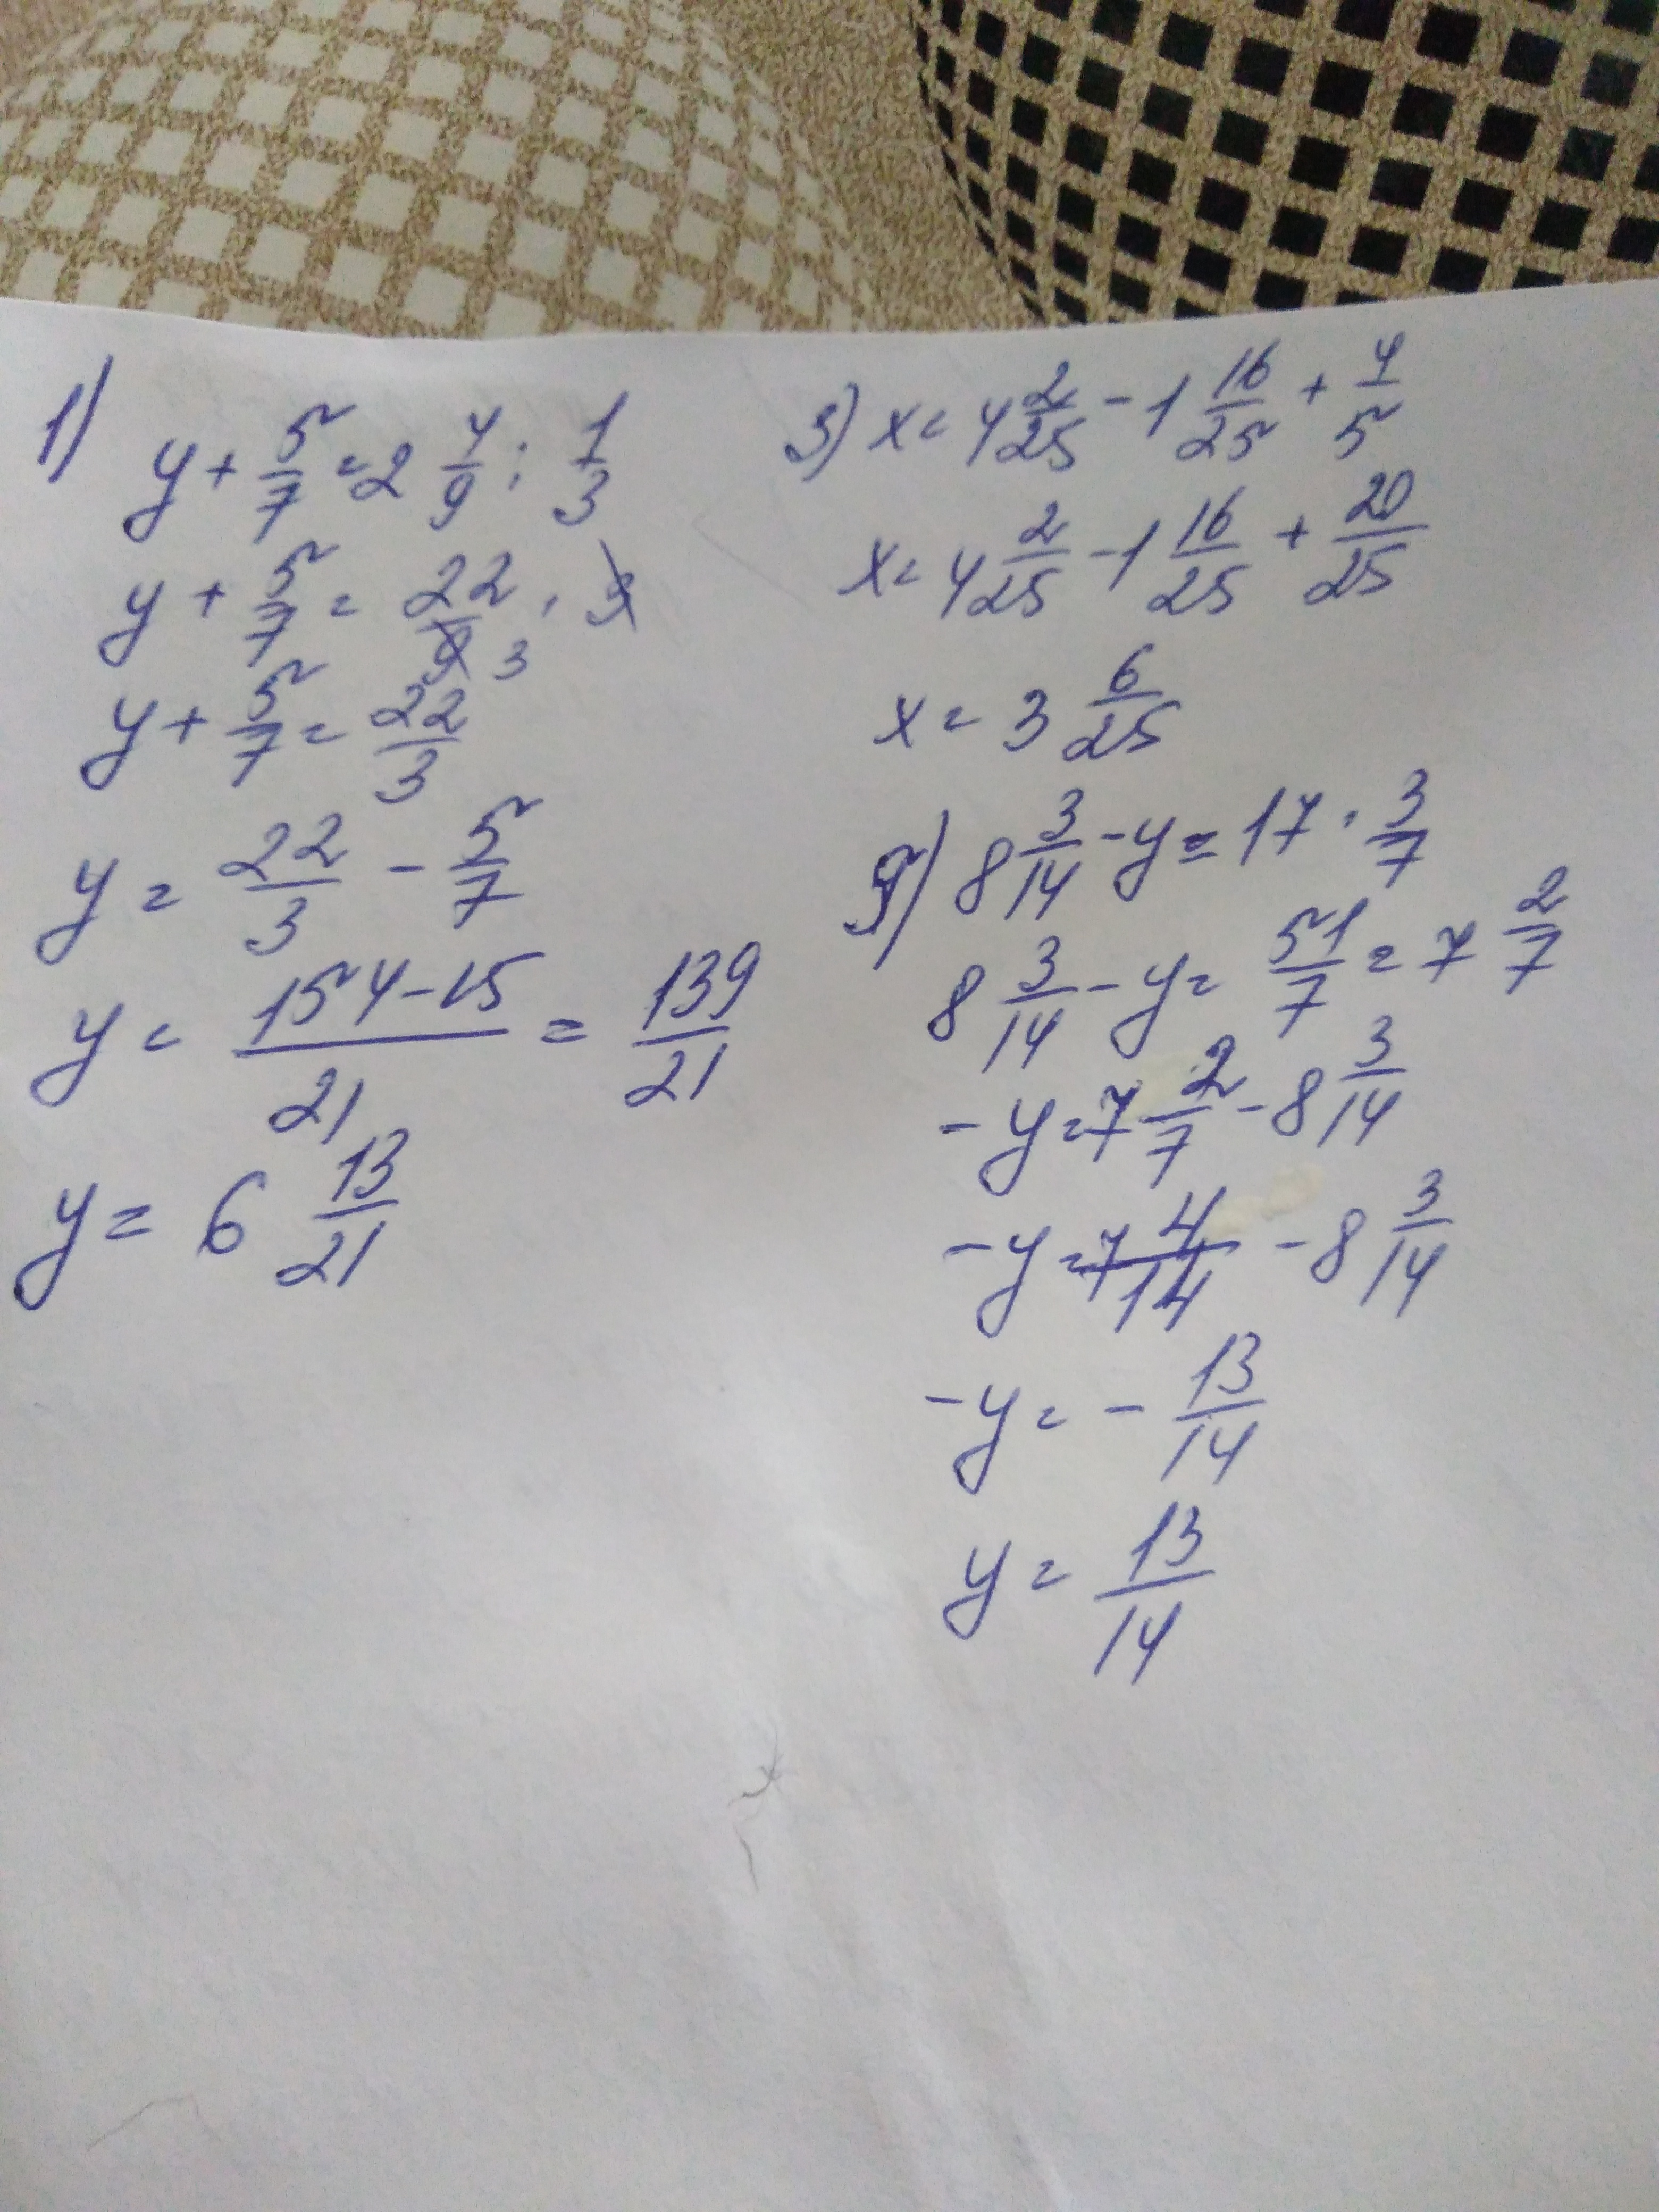 1) y + 5/7 = 2 4/9 : 1/3
y + 5/7 = 22/9 3 · 3
y + 5/7 = 22/3
y = 22/3 - 5/7
y = 154-15/21 = 139/21
y = 6 13/21
3) x = 4 2/25 - 1 16/25 + 4/5
x = 4 2/25 - 1 16/25 + 20/25
x = 3 6/25
9) 8 3/14 - y = 17 · 3/7
8 3/14 - y = 51/7 = 7 2/7
- y = 7 2/7 - 8 3/14
- y = 7 4/14 - 8 3/14
- y = - 13/14
y = 13/14